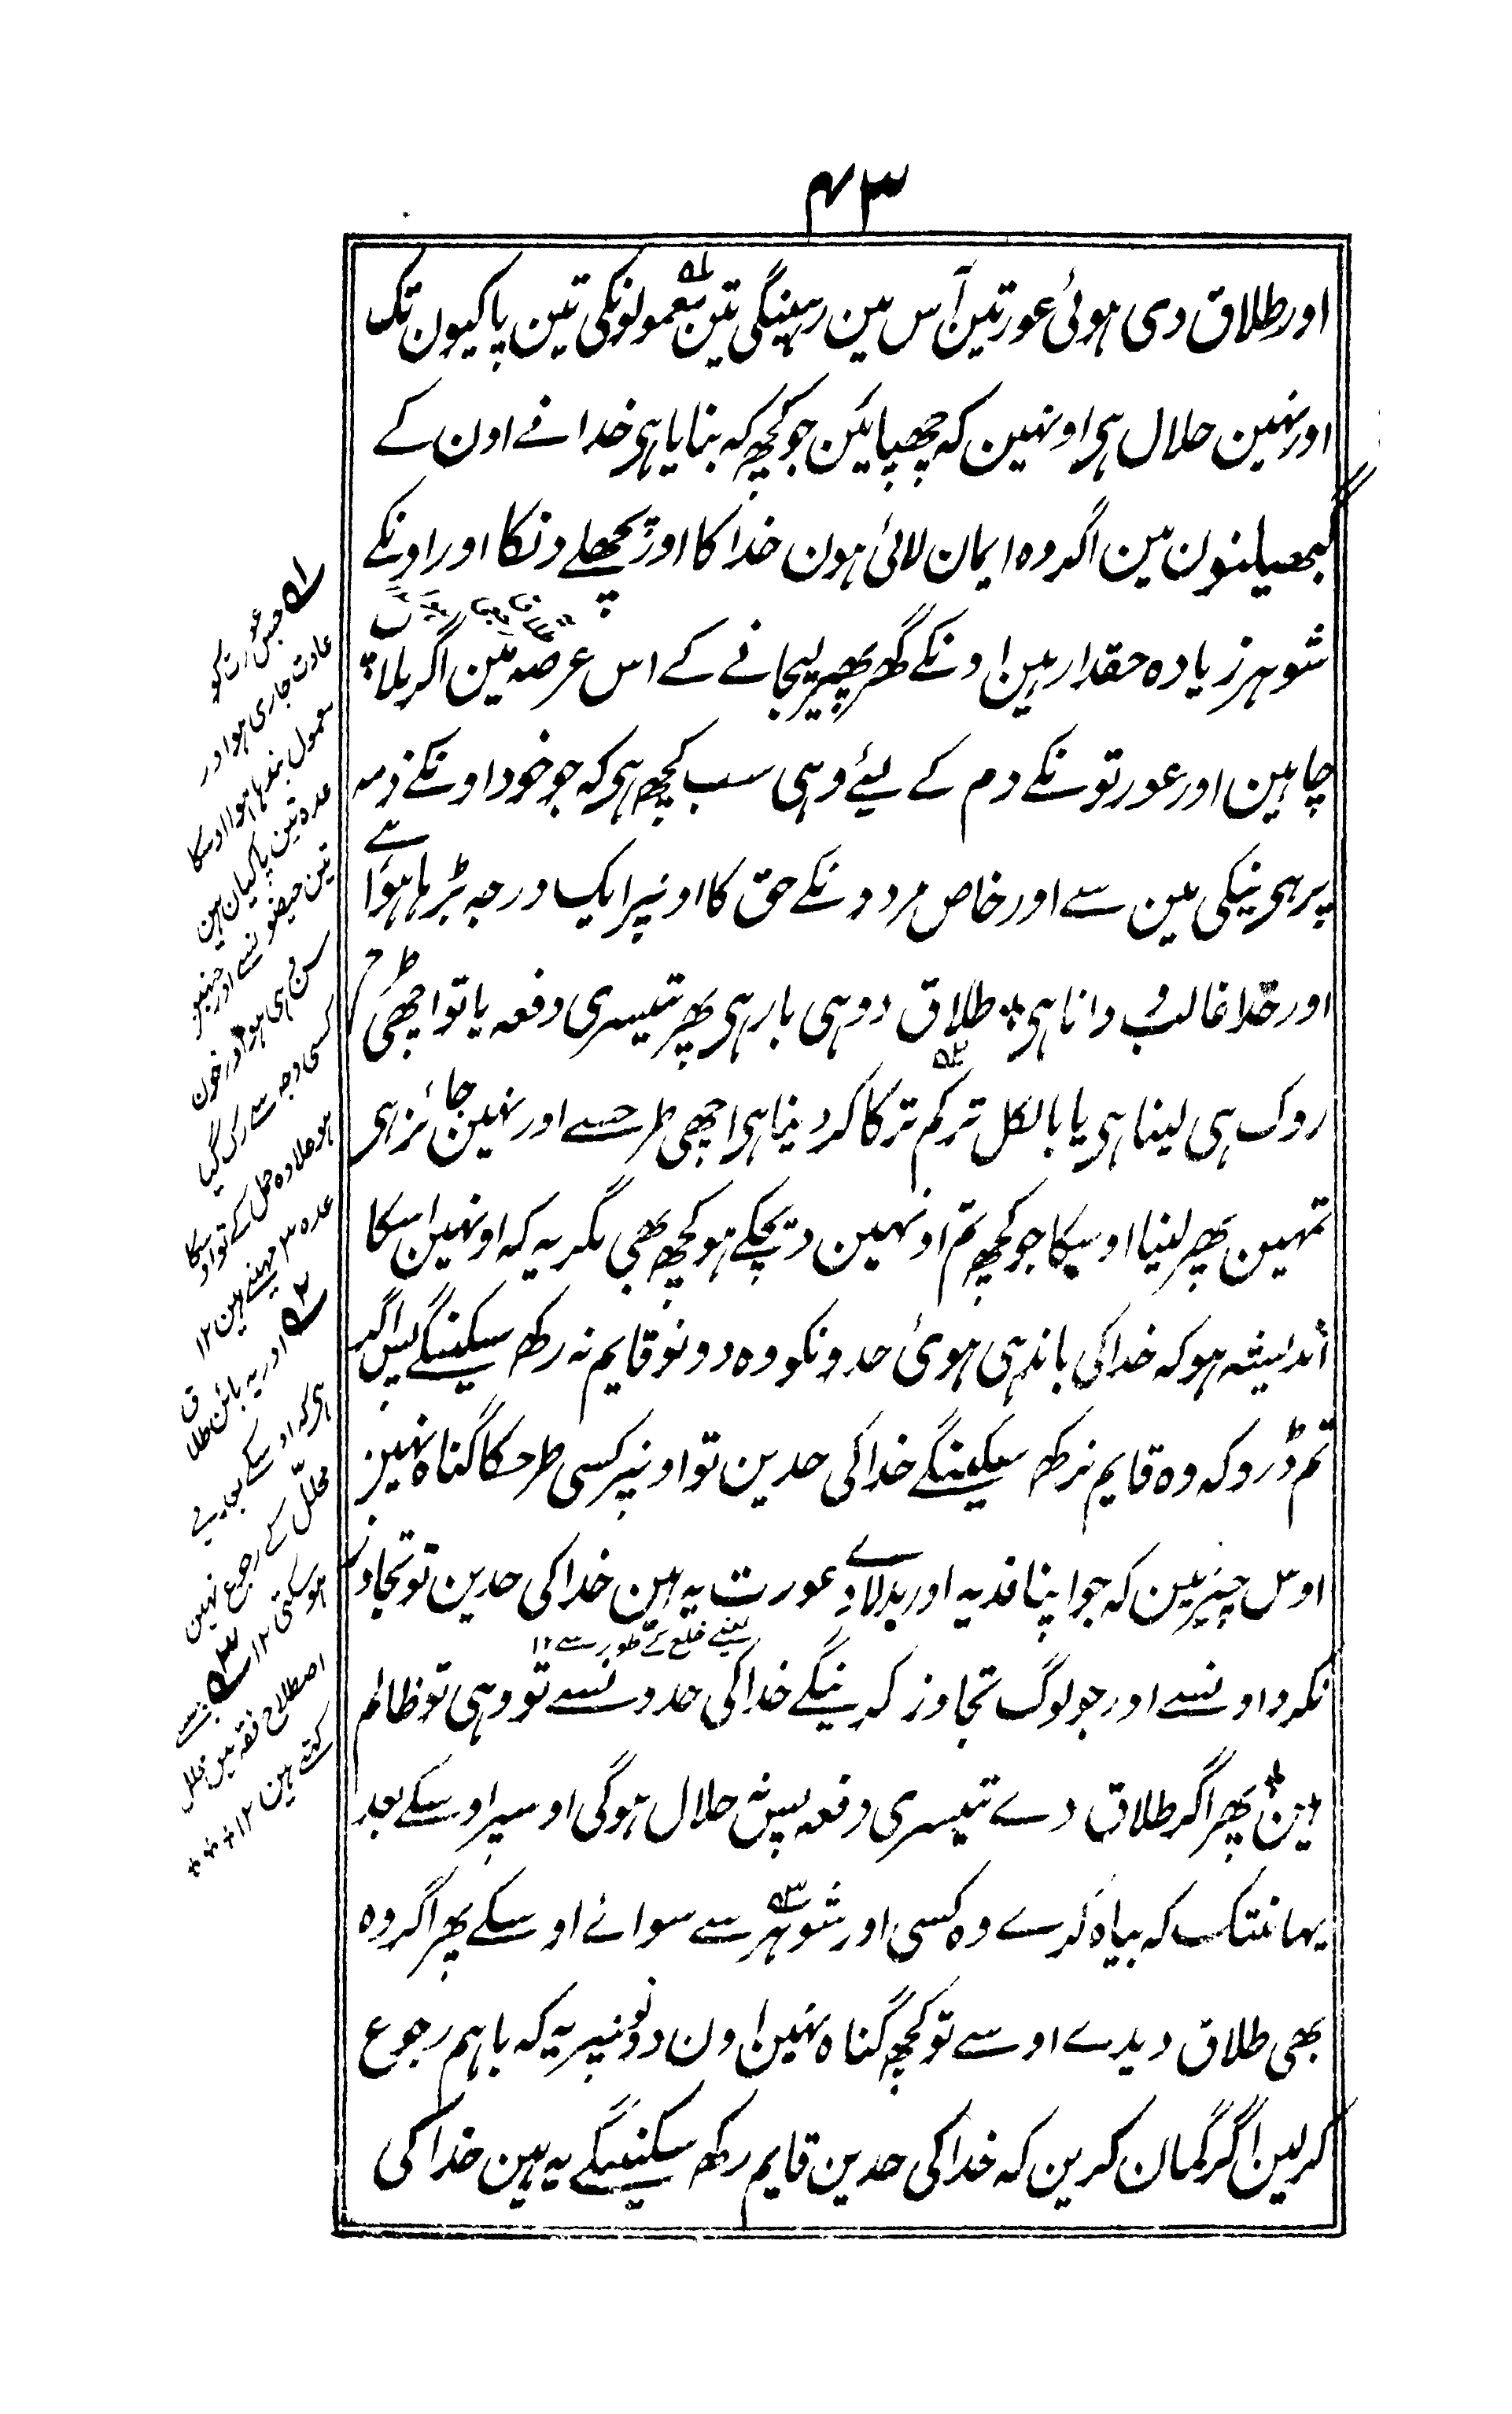 ۴۳
اور طلاق دی ہوئی عورتین آس مین رہینگی تین معمولونکی تین پاکیون تک
اور نہین حلال ہی اونہین کہ چھپائین جو کچھ کہ بنایا ہی خدا نے اون کے
گبھیلنون مین اگر وہ ایمان لائی ہون خدا کا اور پچھلے دنکا اور اونکے
شوہر زیادہ حقدار ہین اونکے گھر پھیر لیجانے کے اس عرصہ مین اگر ملاپ
چاہین اور عورتونکے دم کے لیئے وہی سب کچھ ہی کہ جو خود اونکے ذمہ
پر ہی نیکی مین سے اور خاص مردونکے حق کا اونپر ایک درجہ بڑہا ہوا ہے
اور خدا غالب و دانا ہی طلاق دو ہی بار ہی پھر تیسری دفعہ یا تو اچھی طرح
روک ہی لینا ہی یا بالکل ترکم ترکا کر دینا ہی اچھی طرحسے اور نہین جائز ہی
تمہین پھر لینا اوسیکا جو کچھ تم اونہین دیچکے ہو کچھ بھی مگر یہ کہ اونہین اسکا
اندیشہ ہو کہ خدا کی باندہی ہوئی حدونکو وہ دونو قایم نہ رکھ سکینگے پس اگر
تم ڈرو کہ وہ قایم نرکھ سکینگے خدا کی حدین تو اونپر کسی طرحکا گناہ نہین
اوس چیز مین کہ جو اپنا فدیہ اور بدلا دے عورت یہ ہین خدا کی حدین تو تجاوز
یعنے خلع کے طور سے ۱۲
نکرو اونسے اور جو لوگ تجاوز کرینگے خدا کی حدونسے تو وہی تو ظالم
ہین پھر اگر طلاق دے تیسری دفعہ پس نہ حلال ہوگی اوسپر اوسکے بعد
یہانتک کہ بیاہ کرے وہ کسی اور شوہر سے سوائے اوسکے پھر اگر وہ
بھی طلاق دیدے اوسے تو کچھ گناہ نہین اون دونونپر یہ کہ باہم رجوع
کرلین اگر گمان کرین کہ خدا کی حدین قایم رکھ سکینگے یہ ہین خدا کی
۱ جس عورت کو
عادت جاری ہو اور
معمول بندہا ہوا اوسکا
عدہ تین پاکیان ہین
تین حیضونسے اور جنہو
سن ہی ہو اور خون
کسی وجہ سے رک گیا
ہو علاوہ حمل کے تو اوسکا
عدہ ۳ مہینے ہین ۱۲
۲ اور یہ بائن طلاق
ہی کہ اوسکے بعد بے
محلل کے رجوع نہین
ہو سکتی ۱۲ ۳ جسے
اصطلاح فقہ مین محلل
کہتے ہین ۱۲